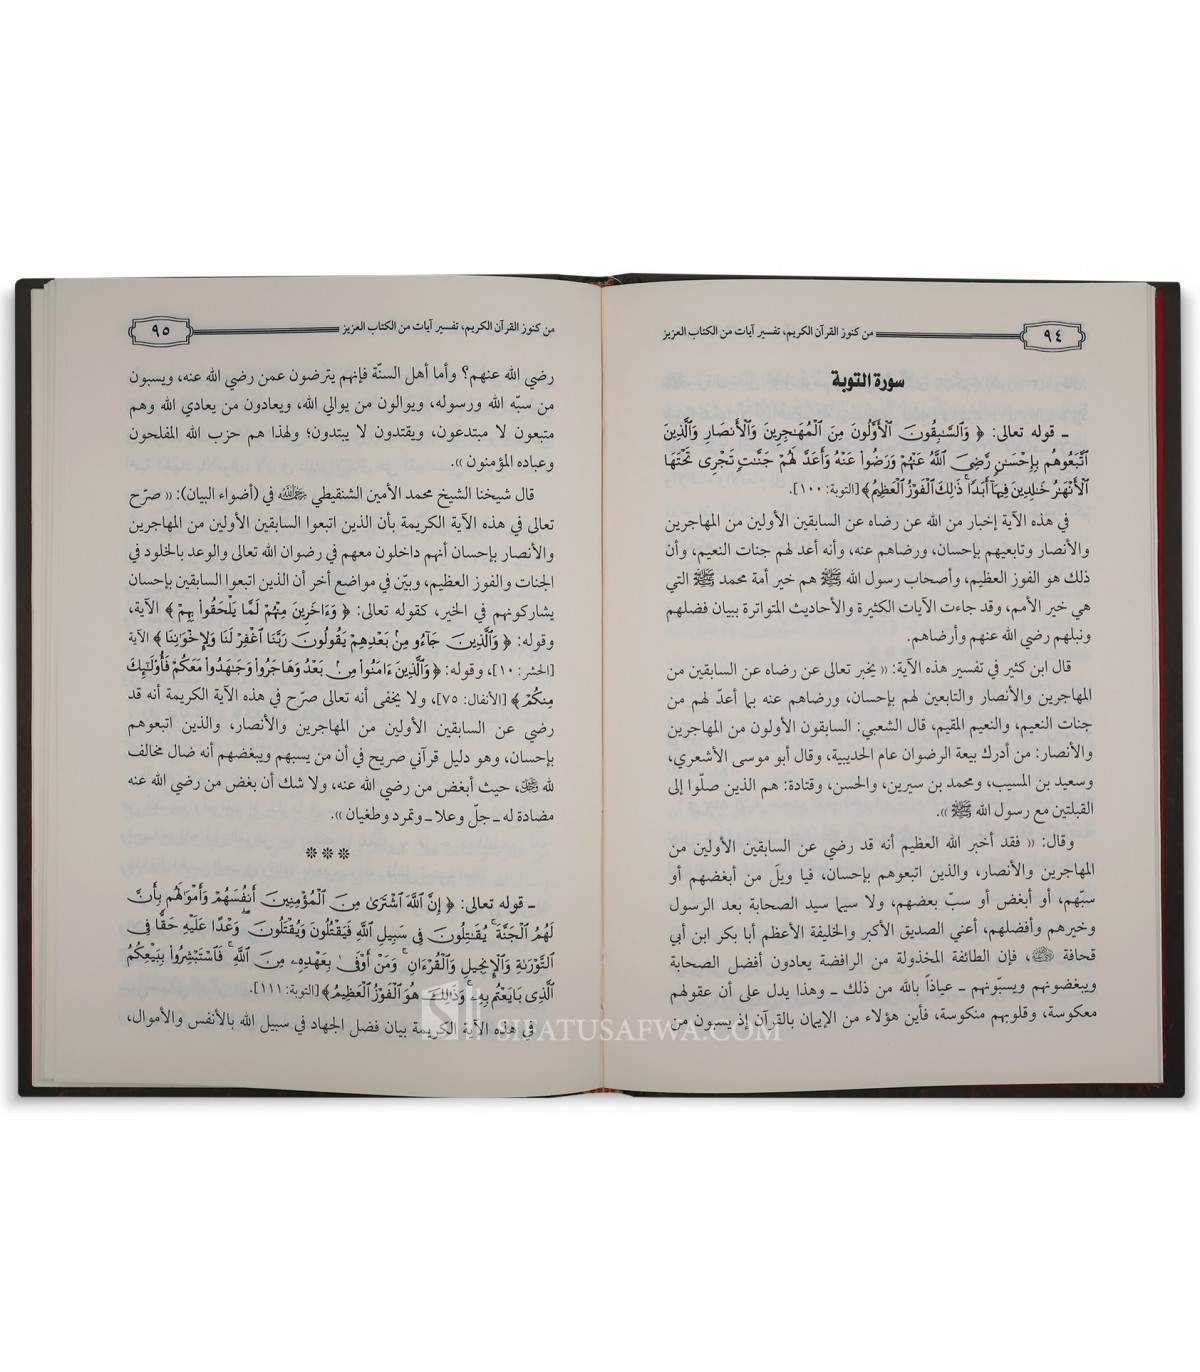 من كنوز القرآن الكريم، تفسير آيات من الكتاب العزيز
٩٤
سورة التوبة
ـ قوله تعالى: ﴿ وَٱلسَّٰبِقُونَ ٱلْأَوَّلُونَ مِنَ ٱلْمُهَٰجِرِينَ وَٱلْأَنصَارِ وَٱلَّذِينَ
ٱتَّبَعُوهُم بِإِحْسَٰنٍ رَّضِىَ ٱللَّهُ عَنْهُمْ وَرَضُوا۟ عَنْهُ وَأَعَدَّ لَهُمْ جَنَّٰتٍ تَجْرِى تَحْتَهَا
ٱلْأَنْهَٰرُ خَٰلِدِينَ فِيهَآ أَبَدًا ۚ ذَٰلِكَ ٱلْفَوْزُ ٱلْعَظِيمُ ﴾ [التوبة: ١٠٠].
في هذه الآية إخبار من الله عن رضاه عن السابقين الأولين من المهاجرين
والأنصار وتابعيهم بإحسان، ورضاهم عنه، وأنه أعد لهم جنات النعيم، وأن
ذلك هو الفوز العظيم، وأصحاب رسول الله ﷺ هم خير أمة محمد ﷺ التي
هي خير الأمم، وقد جاءت الآيات الكثيرة والأحاديث المتواترة ببيان فضلهم
ونبلهم رضي الله عنهم وأرضاهم.
قال ابن كثير في تفسير هذه الآية: « يخبر تعالى عن رضاه عن السابقين من
المهاجرين والأنصار والتابعين لهم بإحسان، ورضاهم عنه بما أعدّ لهم من
جنات النعيم، والنعيم المقيم، قال الشعبي: السابقون الأولون من المهاجرين
والأنصار: من أدرك بيعة الرضوان عام الحديبية، وقال أبو موسى الأشعري،
وسعيد بن المسيب، ومحمد بن سيرين، والحسن، وقتادة: هم الذين صلّوا إلى
القبلتين مع رسول الله ﷺ ».
وقال: « فقد أخبر الله العظيم أنه قد رضي عن السابقين الأولين من
المهاجرين والأنصار، والذين اتبعوهم بإحسان، فيا ويلَ من أبغضهم أو
سبّهم، أو أبغض أو سبّ بعضهم، ولا سيما سيد الصحابة بعد الرسول
وخيرهم وأفضلهم، أعني الصديق الأكبر والخليفة الأعظم أبا بكر ابن أبي
قحافة ﵁، فإن الطائفة المخذولة من الرافضة يعادون أفضل الصحابة
ويبغضونهم ويسبّونهم ـ عياذاً بالله من ذلك ـ وهذا يدل على أن عقولهم
معكوسة، وقلوبهم منكوسة، فأين هؤلاء من الإيمان بالقرآن إذ يسبون من
من كنوز القرآن الكريم، تفسير آيات من الكتاب العزيز
٩٥
رضي الله عنهم؟ وأما أهل السنّة فإنهم يترضون عمن رضي الله عنه، ويسبون
من سبّه الله ورسوله، ويوالون من يوالي الله، ويعادون من يعادي الله وهم
متبعون لا مبتدعون، ويقتدون لا يبتدون؛ ولهذا هم حزب الله المفلحون
وعباده المؤمنون ».
قال شيخنا الشيخ محمد الأمين الشنقيطي ﵀ في (أضواء البيان): « صرّح
تعالى في هذه الآية الكريمة بأن الذين اتبعوا السابقين الأولين من المهاجرين
والأنصار بإحسان أنهم داخلون معهم في رضوان الله تعالى والوعد بالخلود في
الجنات والفوز العظيم، وبيّن في مواضع أخر أن الذين اتبعوا السابقين بإحسان
يشاركونهم في الخير، كقوله تعالى: ﴿ وَءَاخَرِينَ مِنْهُمْ لَمَّا يَلْحَقُوا۟ بِهِمْ ﴾ الآية،
وقوله: ﴿ وَٱلَّذِينَ جَآءُو مِنۢ بَعْدِهِمْ يَقُولُونَ رَبَّنَا ٱغْفِرْ لَنَا وَلِإِخْوَٰنِنَا ﴾ الآية
[الحشر: ١٠]، وقوله: ﴿ وَٱلَّذِينَ ءَامَنُوا۟ مِنۢ بَعْدُ وَهَاجَرُوا۟ وَجَٰهَدُوا۟ مَعَكُمْ فَأُو۟لَٰٓئِكَ
مِنكُمْ ﴾ [الأنفال: ٧٥]، ولا يخفى أنه تعالى صرّح في هذه الآية الكريمة أنه قد
رضي عن السابقين الأولين من المهاجرين والأنصار، والذين اتبعوهم
بإحسان، وهو دليل قرآني صريح في أن من يسبهم ويبغضهم أنه ضال مخالف
لله ﷻ، حيث أبغض من رضي الله عنه، ولا شك أن بغض من رضي الله عنه
مضادة له ـ جلّ وعلا ـ وتمرد وطغيان ».
* * *
ـ قوله تعالى: ﴿ إِنَّ ٱللَّهَ ٱشْتَرَىٰ مِنَ ٱلْمُؤْمِنِينَ أَنفُسَهُمْ وَأَمْوَٰلَهُم بِأَنَّ
لَهُمُ ٱلْجَنَّةَ ۚ يُقَٰتِلُونَ فِى سَبِيلِ ٱللَّهِ فَيَقْتُلُونَ وَيُقْتَلُونَ ۖ وَعْدًا عَلَيْهِ حَقًّا فِى
ٱلتَّوْرَىٰةِ وَٱلْإِنجِيلِ وَٱلْقُرْءَانِ ۚ وَمَنْ أَوْفَىٰ بِعَهْدِهِۦ مِنَ ٱللَّهِ ۚ فَٱسْتَبْشِرُوا۟ بِبَيْعِكُمُ
ٱلَّذِى بَايَعْتُم بِهِۦ ۚ وَذَٰلِكَ هُوَ ٱلْفَوْزُ ٱلْعَظِيمُ ﴾ [التوبة: ١١١].
في هذه الآية الكريمة بيان فضل الجهاد في سبيل الله بالأنفس والأموال،
SIFATUSAFWA.COM